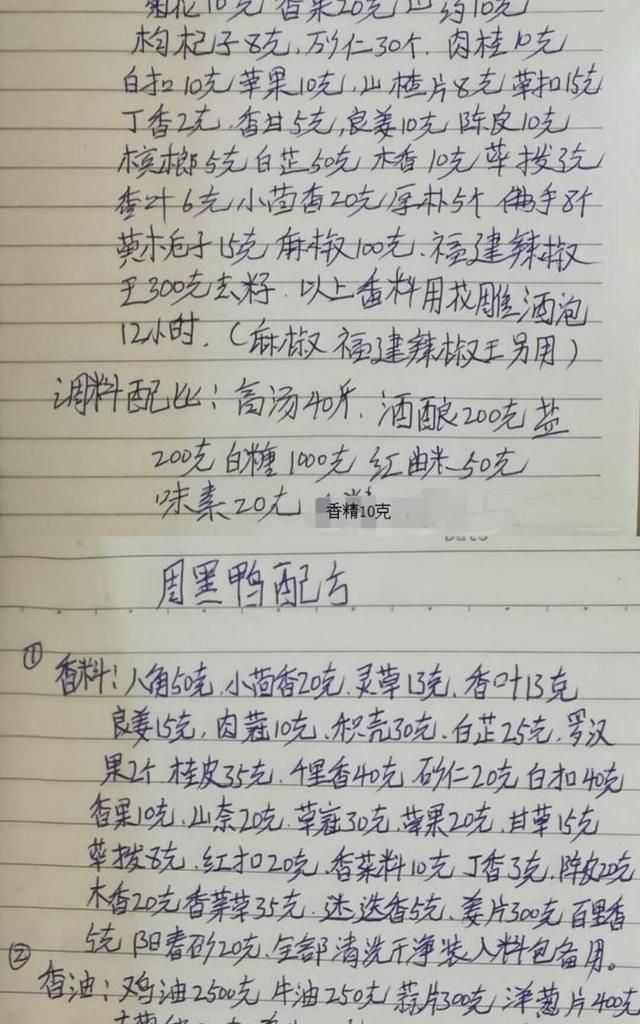 菊花10克 香果20克 山药10克
枸杞子8克,砂仁30个.肉桂10克
白扣10克,草果10克,山楂片8克,草扣15克
丁香2克.香甘5克,良姜10克 陈皮10克
槟榔5克 白芷50克 木香10克 荜拨3克
香叶6克,小茴香20克,厚朴5个 佛手8个
黄木栀子15克 麻椒100克、福建辣椒
王300克去籽.以上香料用花雕酒泡
12小时.(麻椒 福建辣椒王另用)
调料配比:高汤40斤.酒酿200克 盐
200克 白糖1000克 红曲米50克
味素20克 香精10克
Date
周黑鸭配方
① 香料:八角50克,小茴香20克.灵草13克.香叶13克
良姜15克,肉蔻10克、枳壳30克、白芷25克.罗汉
果2个 桂皮35克.千里香40克 砂仁20克 白扣40克
香果10克.山奈20克.草蔻30克.草果20克、甘草15克
荜拨8克.红扣20克.香菜料10克 丁香3克.陈皮20克
木香20克 香茅草35克.迷迭香5克、姜片300克 百里香
5克 阳春砂20克.全部清洗干净装入料包备用。
② 香油:鸡油2500克 牛油250克 蒜片300克 洋葱片400克